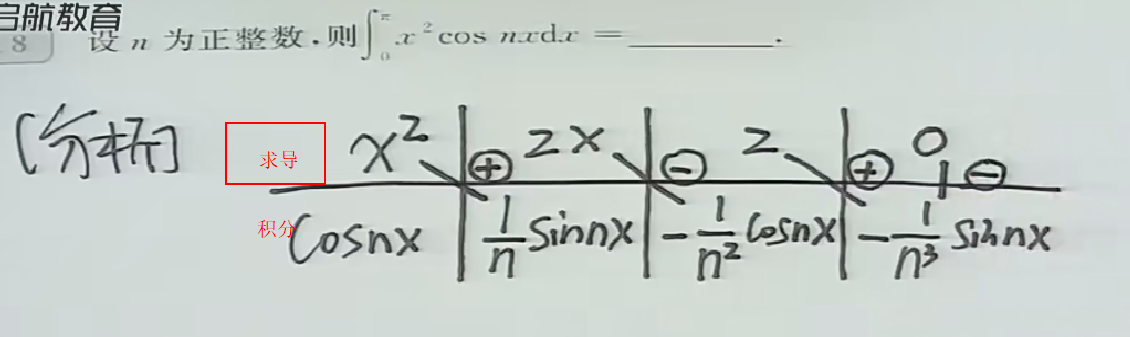 启航教育
8 设 n 为正整数,则∫₀^π x² cos nxdx = ________.
[分析] 求导 x² ⊕ 2x ⊖ 2 ⊕ 0 ⊖
积分 cosnx 1/n sinnx -1/n² cosnx -1/n³ sinnx